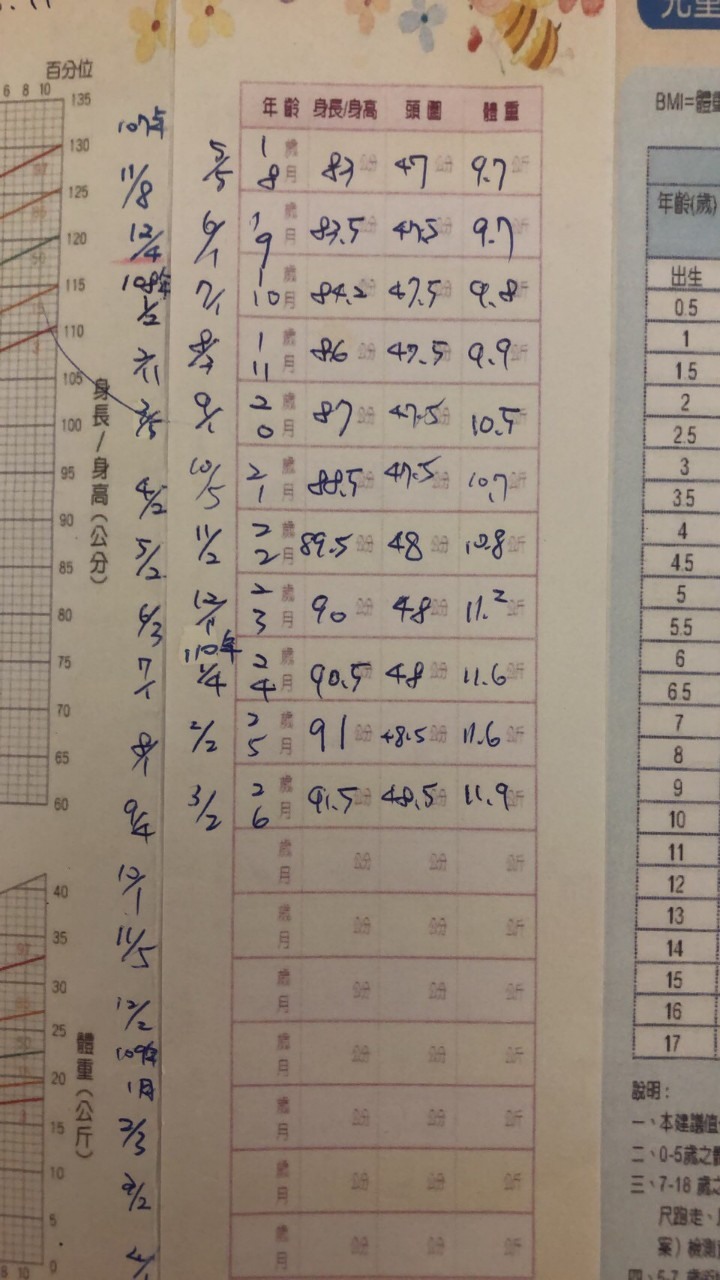 百分位
6 8 10
135
130
125
120
115
110
105
100
95
90
85
80
75
70
65
60
身長/身高(公分)
40
35
30
25
20
15
10
5
0
體重(公斤)
8 10
107年
11/8
12/4
108年
1/2
2/11
3/5
4/2
5/2
6/3
7/1
8/1
9/4
11/5
12/2
109年
1月
2/3
3/2
年齡 身長/身高 頭圍 體重
5/5 1歲8月 83公分 47公分 9.7公斤
6/1 1歲9月 83.5公分 47.5公分 9.7公斤
7/1 1歲10月 84.2公分 47.5公分 9.8公斤
1歲11月 86公分 47.5公分 9.9公斤
9/1 2歲0月 87公分 47.5公分 10.5公斤
10/5 2歲1月 88.5公分 47.5公分 10.7公斤
11/2 2歲2月 89.5公分 48公分 10.8公斤
12/1 2歲3月 90公分 48公分 11.2公斤
110年
1/4 2歲4月 90.5公分 48公分 11.6公斤
2/2 2歲5月 91公分 48.5公分 11.6公斤
3/2 2歲6月 91.5公分 48.5公分 11.9公斤
歲月 公分 公分 公斤
歲月 公分 公分 公斤
歲月 公分 公分 公斤
歲月 公分 公分 公斤
歲月 公分 公分 公斤
歲月 公分 公分 公斤
歲月 公分 公分 公斤
兒童
BMI=體重
年齡(歲)
出生
0.5
1
1.5
2
2.5
3
3.5
4
4.5
5
5.5
6
6.5
7
8
9
10
11
12
13
14
15
16
17
說明：
一、本建議值
二、0-5歲之體
三、7-18 歲之
尺跑走、
案）檢測
四、5-7 歲